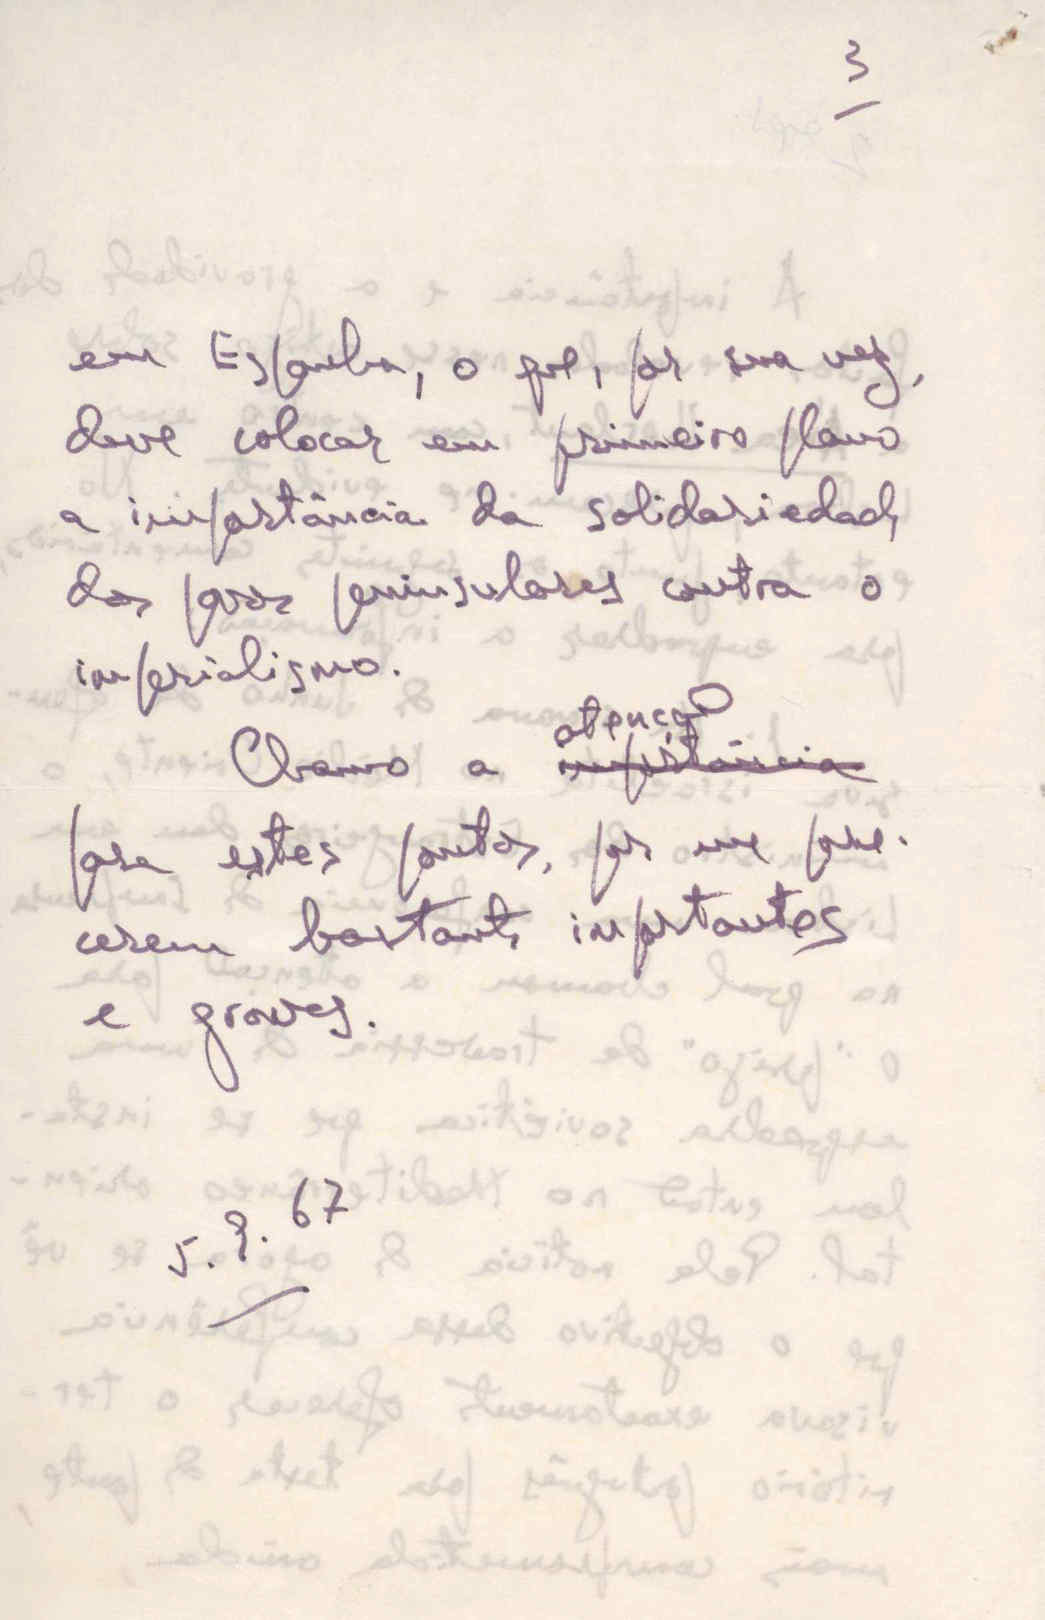 3
em Espanha, o que, por sua vez,
deve colocar em primeiro plano
a importância da solidariedade
dos povos peninsulares contra o
imperialismo.
atenção
Chamo a importância
para estes pontos, por me pare-
cerem bastante importantes
e graves.
5.9.67